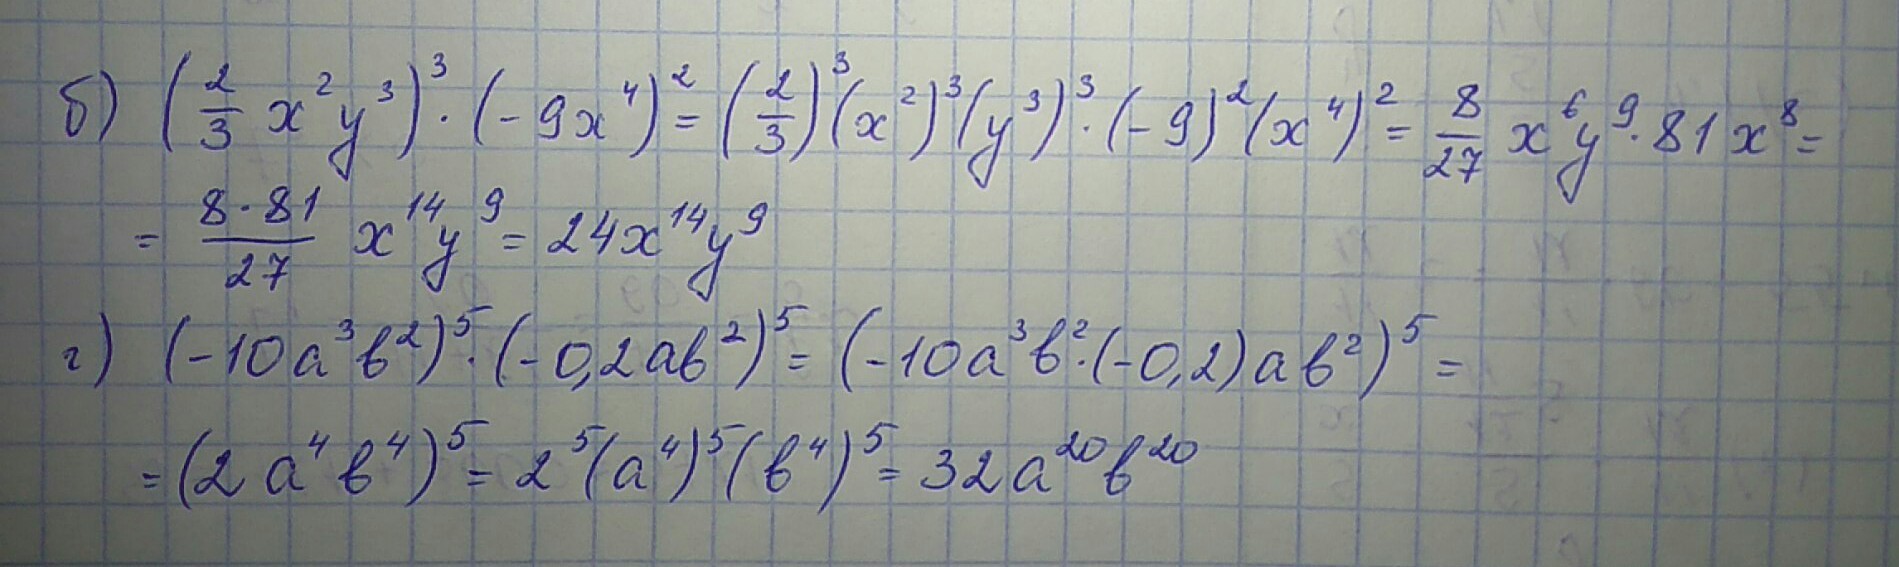 б) (2/3 x²y³)³ · (-9x⁴)² = (2/3)³(x²)³(y³)³ · (-9)²(x⁴)² = 8/27 x⁶y⁹ · 81x⁸ =
= 8·81/27 x¹⁴y⁹ = 24x¹⁴y⁹
г) (-10a³b²)⁵ · (-0,2ab²)⁵ = (-10a³b² · (-0,2)ab²)⁵ =
= (2a⁴b⁴)⁵ = 2⁵(a⁴)⁵(b⁴)⁵ = 32a²⁰b²⁰